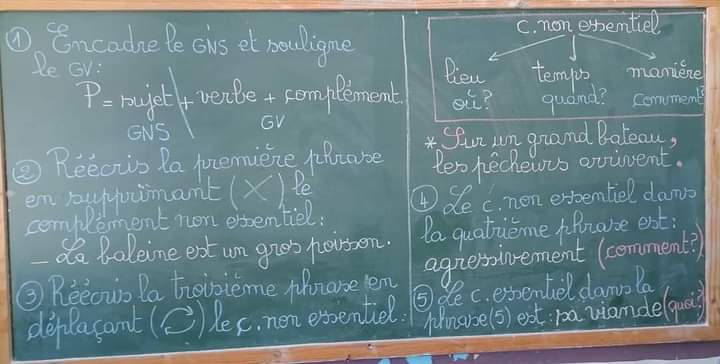 ① Encadre le GNS et souligne
le GV:
P = sujet + verbe + complément.
GNS GV
② Réécris la première phrase
en supprimant (X) le
complément non essentiel:
_ La baleine est un gros poisson.
③ Réécris la troisième phrase en
déplaçant ( ) le c. non essentiel:
c. non essentiel
lieu temps manière
où? quand? comment?
* Sur un grand bateau,
les pêcheurs arrivent.
④ Le c. non essentiel dans
la quatrième phrase est:
agressivement (comment?)
⑤ Le c. essentiel dans la
phrase (5) est: sa viande (quoi?)